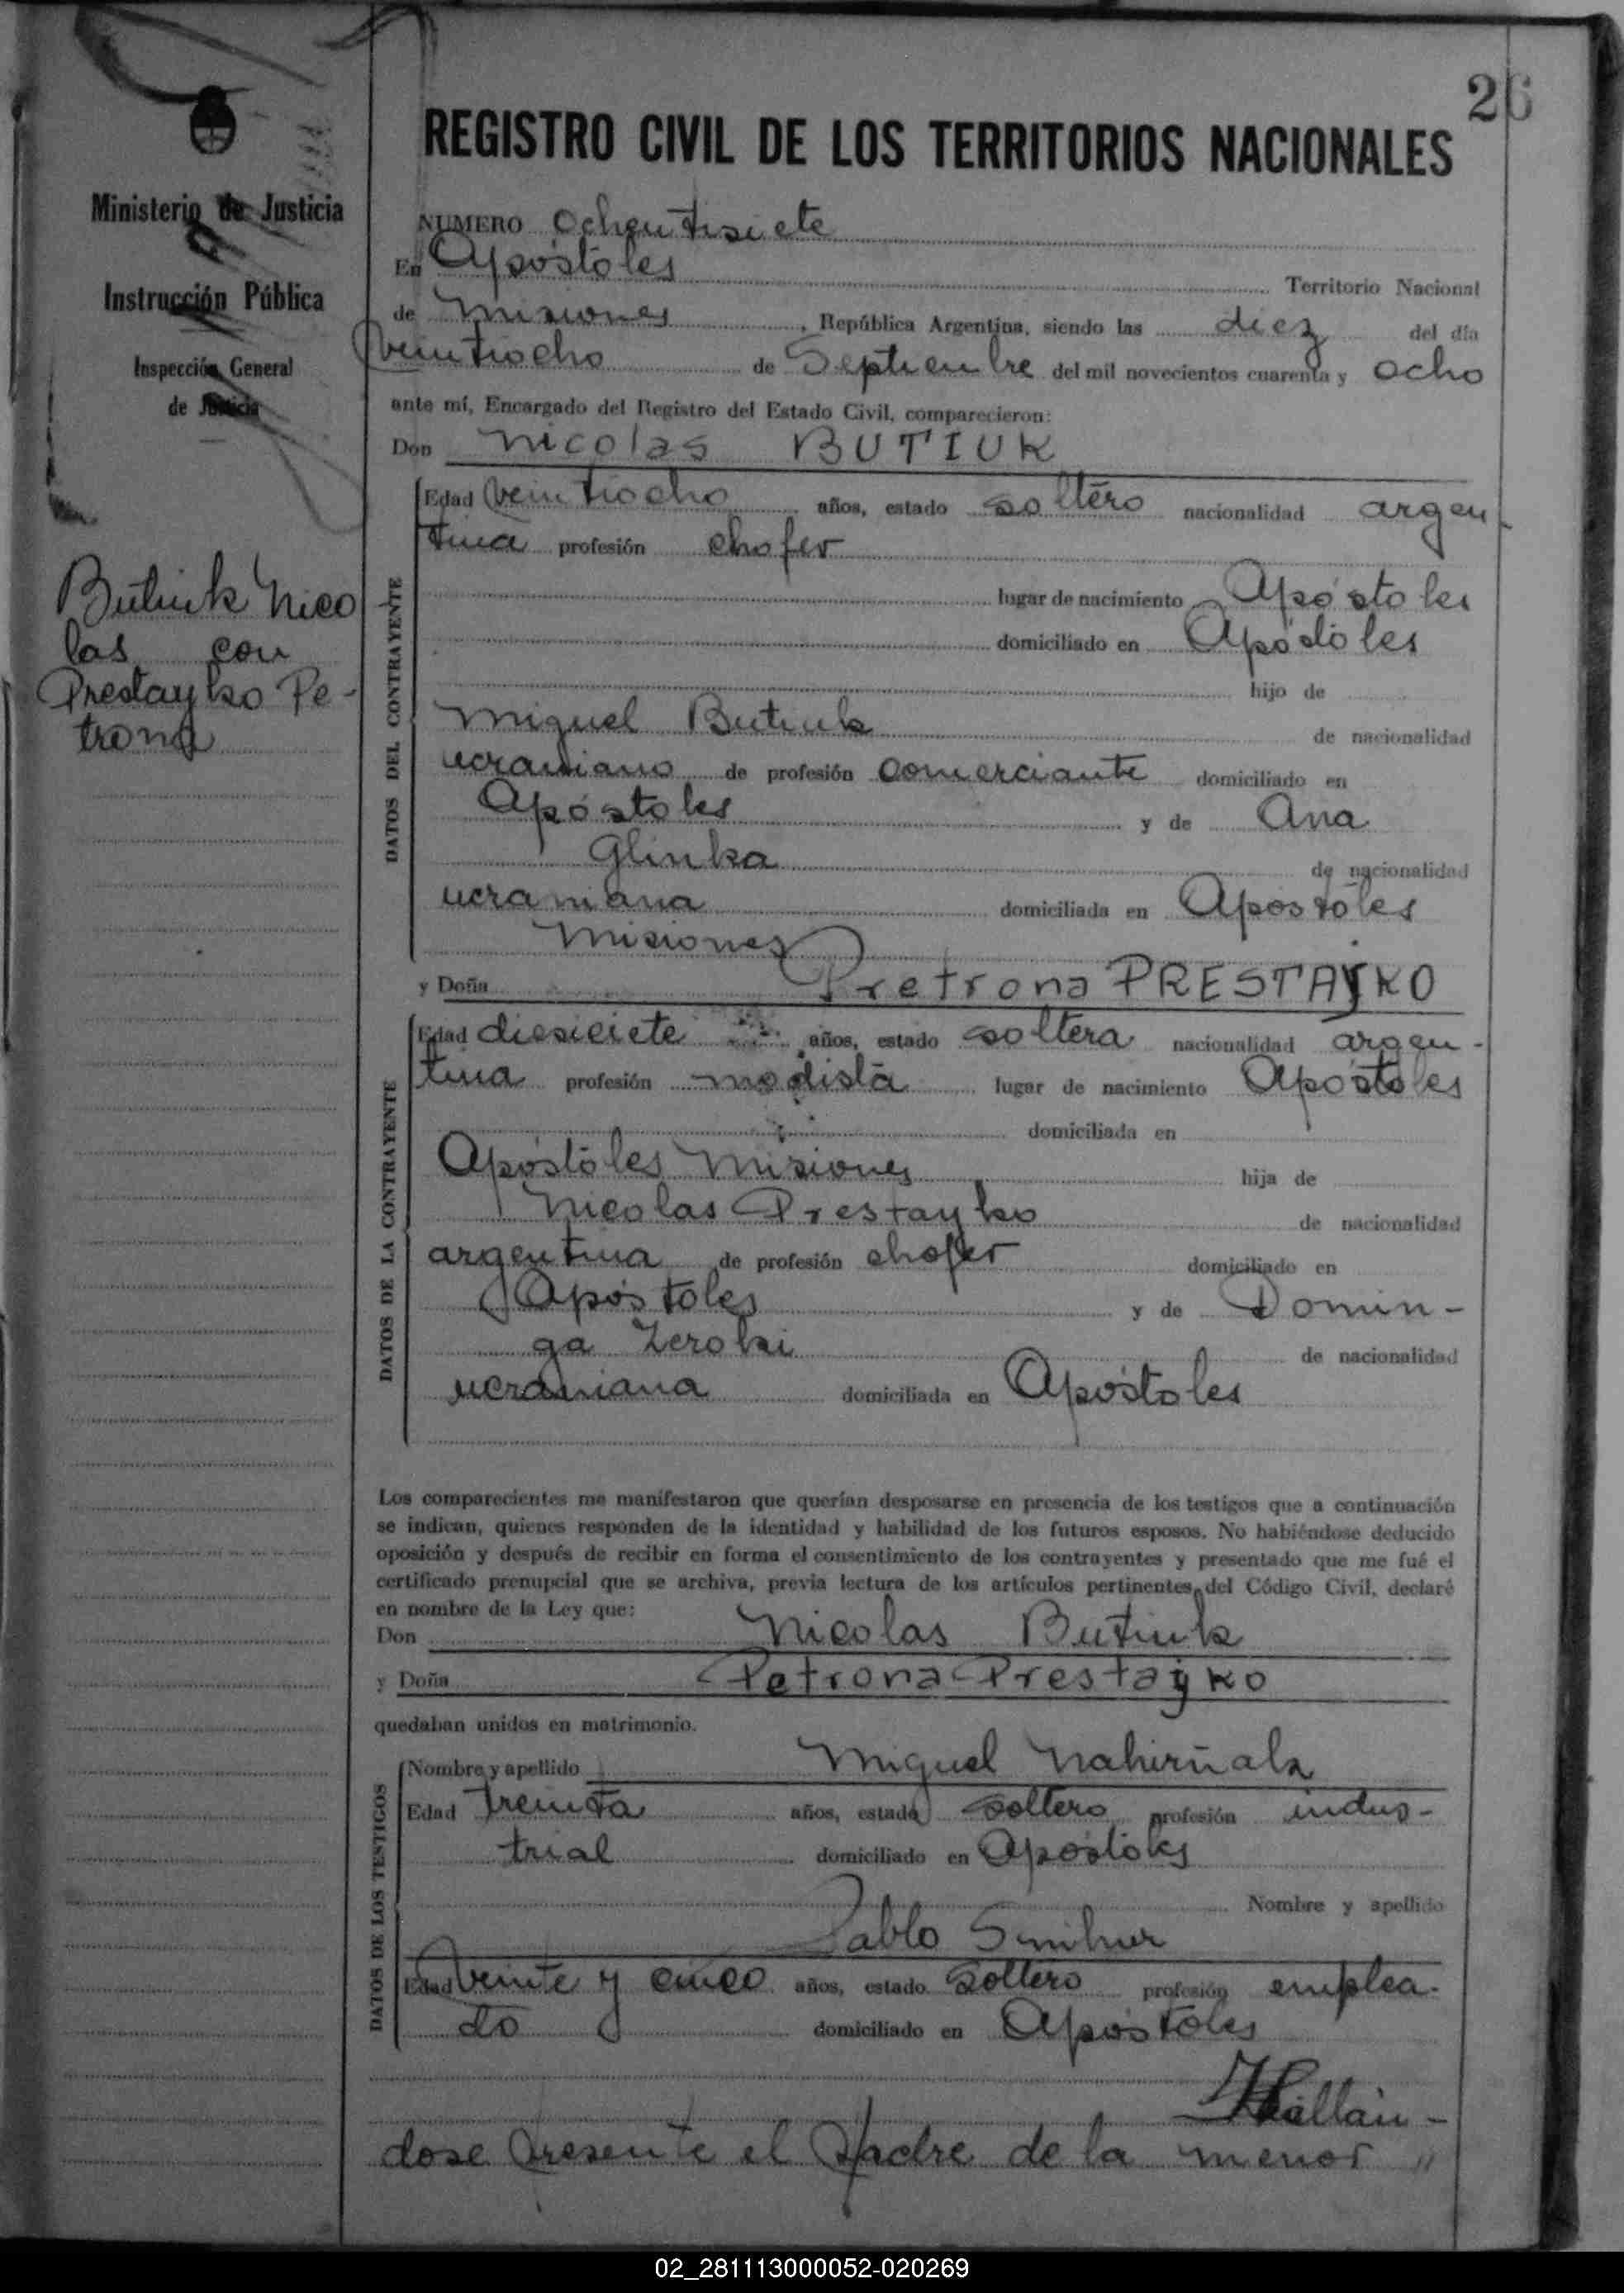 26
REGISTRO CIVIL DE LOS TERRITORIOS NACIONALES
Ministerio de Justicia
Instrucción Pública
Inspección General
de Justicia
Butiuk Nico
las con
Prestayko Pe-
trona
NUMERO ochentisiete
En Apóstoles Territorio Nacional
de Misiones, República Argentina, siendo las diez del día
veintiocho de Septiembre del mil novecientos cuarenta y ocho
ante mí, Encargado del Registro del Estado Civil, comparecieron:
Don Nicolas BUTIUK
DATOS DEL CONTRAYENTE
Edad veintiocho años, estado soltero nacionalidad argen-
tina profesión chofer
lugar de nacimiento Apóstoles
domiciliado en Apóstoles
hijo de
Miguel Butiuk de nacionalidad
ucraniano de profesión comerciante domiciliado en
Apóstoles y de Ana
Glinka de nacionalidad
ucraniana domiciliada en Apostoles
Misiones
y Doña Pretrona PRESTAYKO
DATOS DE LA CONTRAYENTE
Edad diesiciete años, estado soltera nacionalidad argen-
tina profesión modista lugar de nacimiento Apóstoles
domiciliada en
Apóstoles Misiones hija de
Nicolas Prestayko de nacionalidad
argentina de profesión chofer domiciliado en
Apóstoles y de Domin-
ga Zeroki de nacionalidad
ucraniana domiciliada en Apóstoles
Los comparecientes me manifestaron que querían desposarse en presencia de los testigos que a continuación
se indican, quienes responden de la identidad y habilidad de los futuros esposos. No habiéndose deducido
oposición y después de recibir en forma el consentimiento de los contrayentes y presentado que me fué el
certificado prenupcial que se archiva, previa lectura de los artículos pertinentes del Código Civil, declaré
en nombre de la Ley que:
Don Nicolas Butiuk
y Doña Petrona Prestayko
quedaban unidos en matrimonio.
DATOS DE LOS TESTIGOS
Nombre y apellido Miguel Nahirñak
Edad Treinta años, estado soltero profesión indus-
trial domiciliado en Apóstoles
Nombre y apellido
Pablo Smihur
Edad veinte y cinco años, estado soltero profesión emplea-
do domiciliado en Apóstoles
Hallán-
dose presente el padre de la menor "
02_281113000052-020269